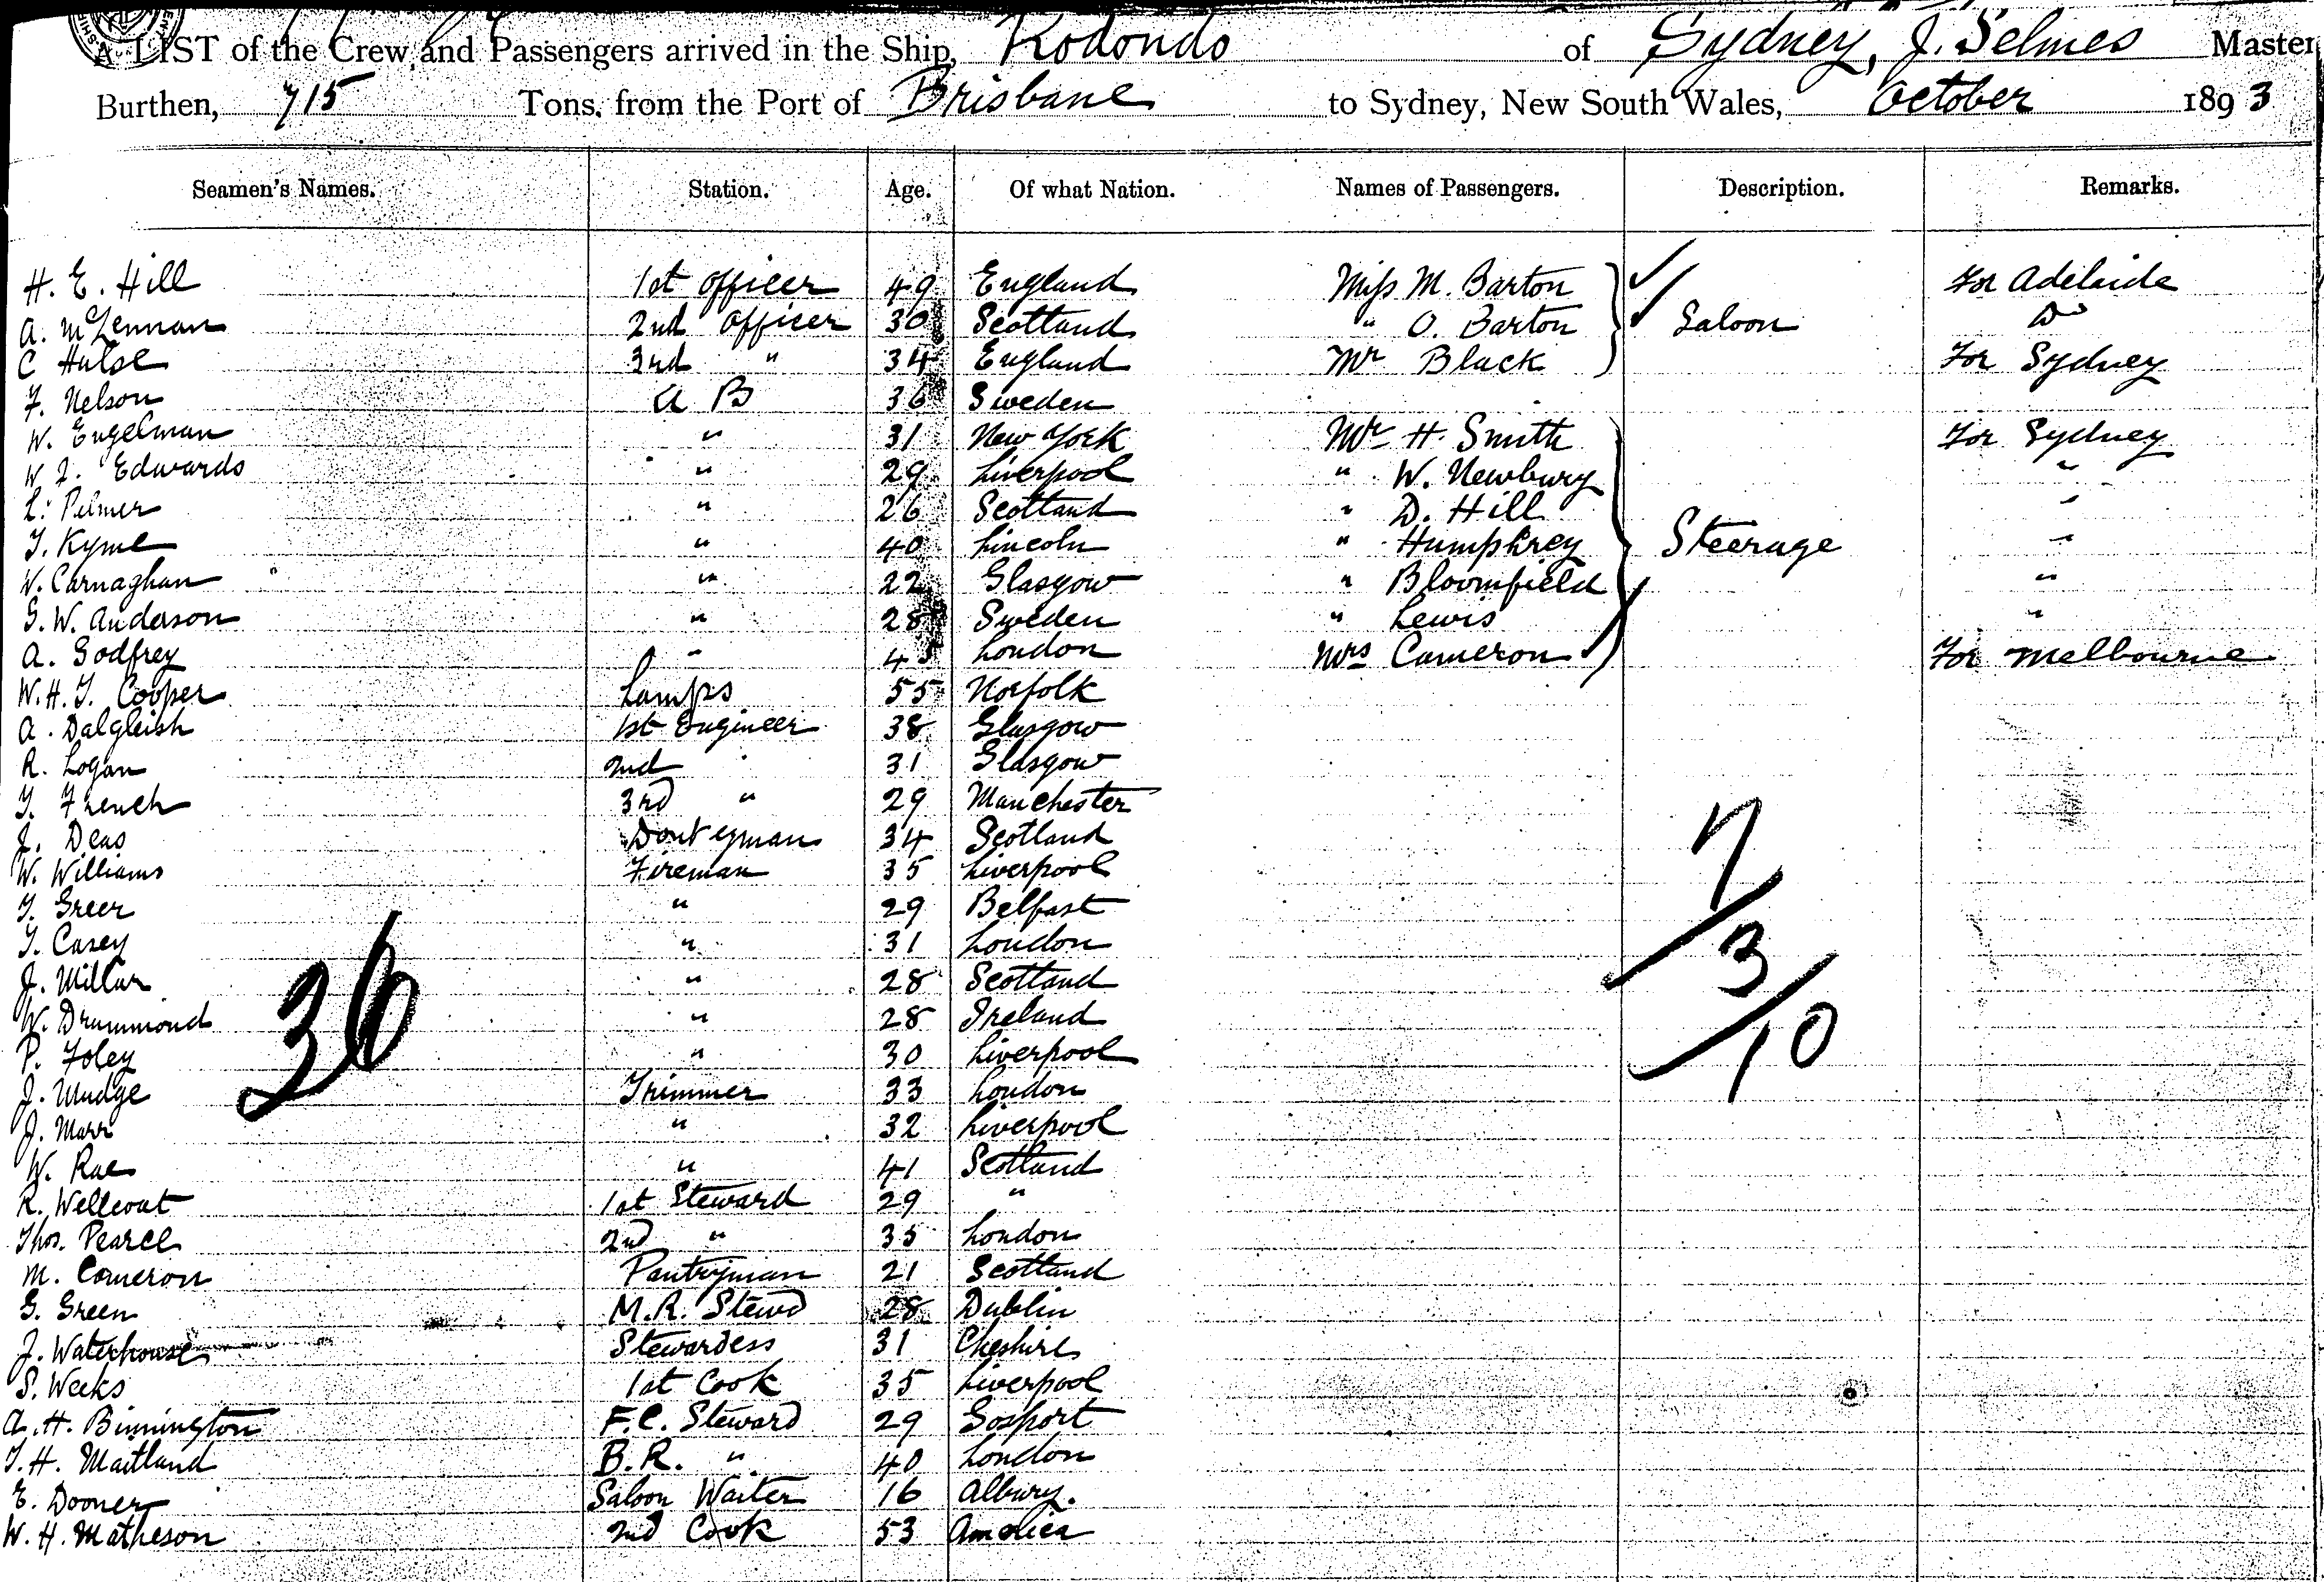 A LIST of the Crew and Passengers arrived in the Ship, Rodondo of Sydney, J. Selmes Master
Burthen, 715 Tons, from the Port of Brisbane to Sydney, New South Wales, October 1893
Seamen's Names. Station. Age. Of what Nation. Names of Passengers. Description. Remarks.
H. E. Hill 1st Officer 49 England Miss M. Barton For Adelaide
A. McLennan 2nd Officer 30 Scotland " O. Barton Saloon Do
C Hulse 3rd " 34 England Mr Black For Sydney
F. Nelson A B 36 Sweden
W. Engelman " 31 New York Mr H. Smith For Sydney
W. J. Edwards " 29 Liverpool " W. Newbury "
L. Pelmer " 26 Scotland " D. Hill "
T. Kyme " 40 Lincoln " Humphrey Steerage "
W. Carnaghan " 22 Glasgow " Bloomfield "
G. W. Anderson " 28 Sweden " Lewis "
A. Godfrey " 45 London Mrs Cameron For Melbourne
W. H. T. Cooper Lamps 55 Norfolk
A. Dalgleish 1st Engineer 38 Glasgow
R. Logan 2nd " 31 Glasgow
T. French 3rd " 29 Manchester
J. Deas Donkeyman 34 Scotland
W. Williams Fireman 35 Liverpool
T. Greer " 29 Belfast
T. Casey " 31 London
J. Millar " 28 Scotland
W. Drummond " 28 Ireland
P. Foley " 30 Liverpool
J. Mudge Trimmer 33 London
J. Marr " 32 Liverpool
W. Rae " 41 Scotland
R. Wellcoat 1st Steward 29 "
Thos. Pearce 2nd " 35 London
M. Cameron Pantryman 21 Scotland
G. Green M.R. Stewd 28 Dublin
J. Waterhouse Stewardess 31 Cheshire
S. Weeks 1st Cook 35 Liverpool
A. H. Binnington F.C. Steward 29 Gosport
T. H. Maitland B.R. " 40 London
E. Dooner Saloon Waiter 16 Albury.
W. H. Matheson 2nd Cook 53 America
36
7
3
10